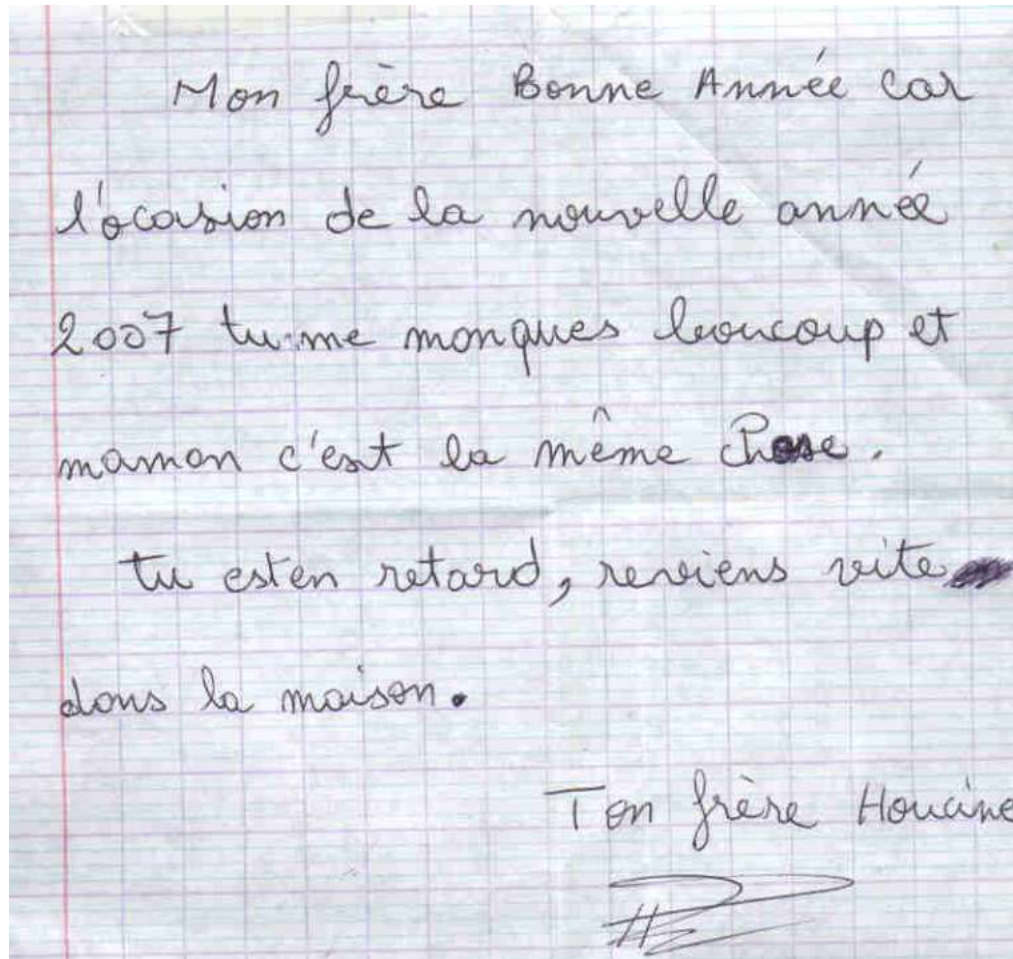 Mon frère Bonne Année car
l'ocasion de la nouvelle année
2007 tu me manques beaucoup et
maman c'est la même chose.
tu est en retard, reviens vite
dans la maison.
Ton frère Houcine